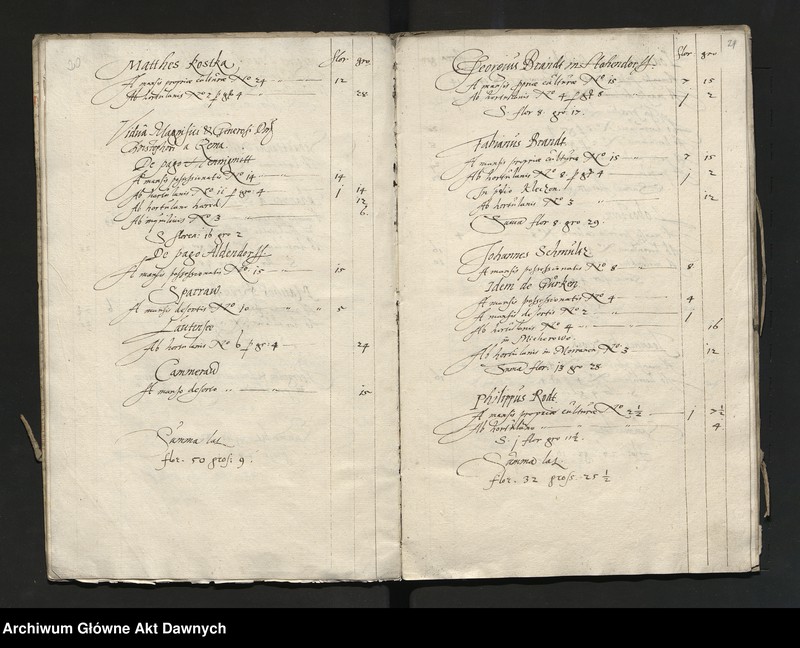 flor gro
Matthes Kostka
A mansis propriae culturae No 24 12
Ab hortulanis No 7 p gr 4 28
Vidua Magnifici & Generosi Dni
Christophori a Zema
De pago
A mansis possessionatis No 14 14
Ab hortulanis No 11 p gro 4 1 14
Ab hortulano 12
Ab inquilinis No 3 6
S florea: 16 gro 2
De pago Aldendorff
A mansis possessionatis No 15 15
Sparraw
A mansis desertis No 10 5
Lautensee
Ab hortulanis No 6 p gr: 4 24
Cammeraw
A manso deserto 15
Summa lat
flor. 50 gros. 9.
29
flor gro
Georgius Brandt in
A mansis propriae culturae No 15 7 15
Ab hortulanis No 4 p gr 8 1 2
S. flor 8. gro 17.
Fabianus Brandt
A mansis propriae culturae No 15 7 15
Ab hortulanis No 8 p gr 4 1 2
In Kleczen
Ab hortulanis No 3 12
Summa flor 8 gro 29.
Johannes Schmultz
A mansis possessionatis No 8 8
Idem de Gurken
A mansis possessionatis No 4 4
A mansis desertis No 2 1
Ab hortulanis No 4 16
in Michorowo
Ab hortulanis in No 3 12
Suma flor. 13 gro 28
Philippus Rodt
A mansis propriae culturae No 2½ 1 7½
Ab hortulano 4
S. 1 flor gro 11½.
Summa lat
flor. 32 gross. 25½
Archiwum Główne Akt Dawnych